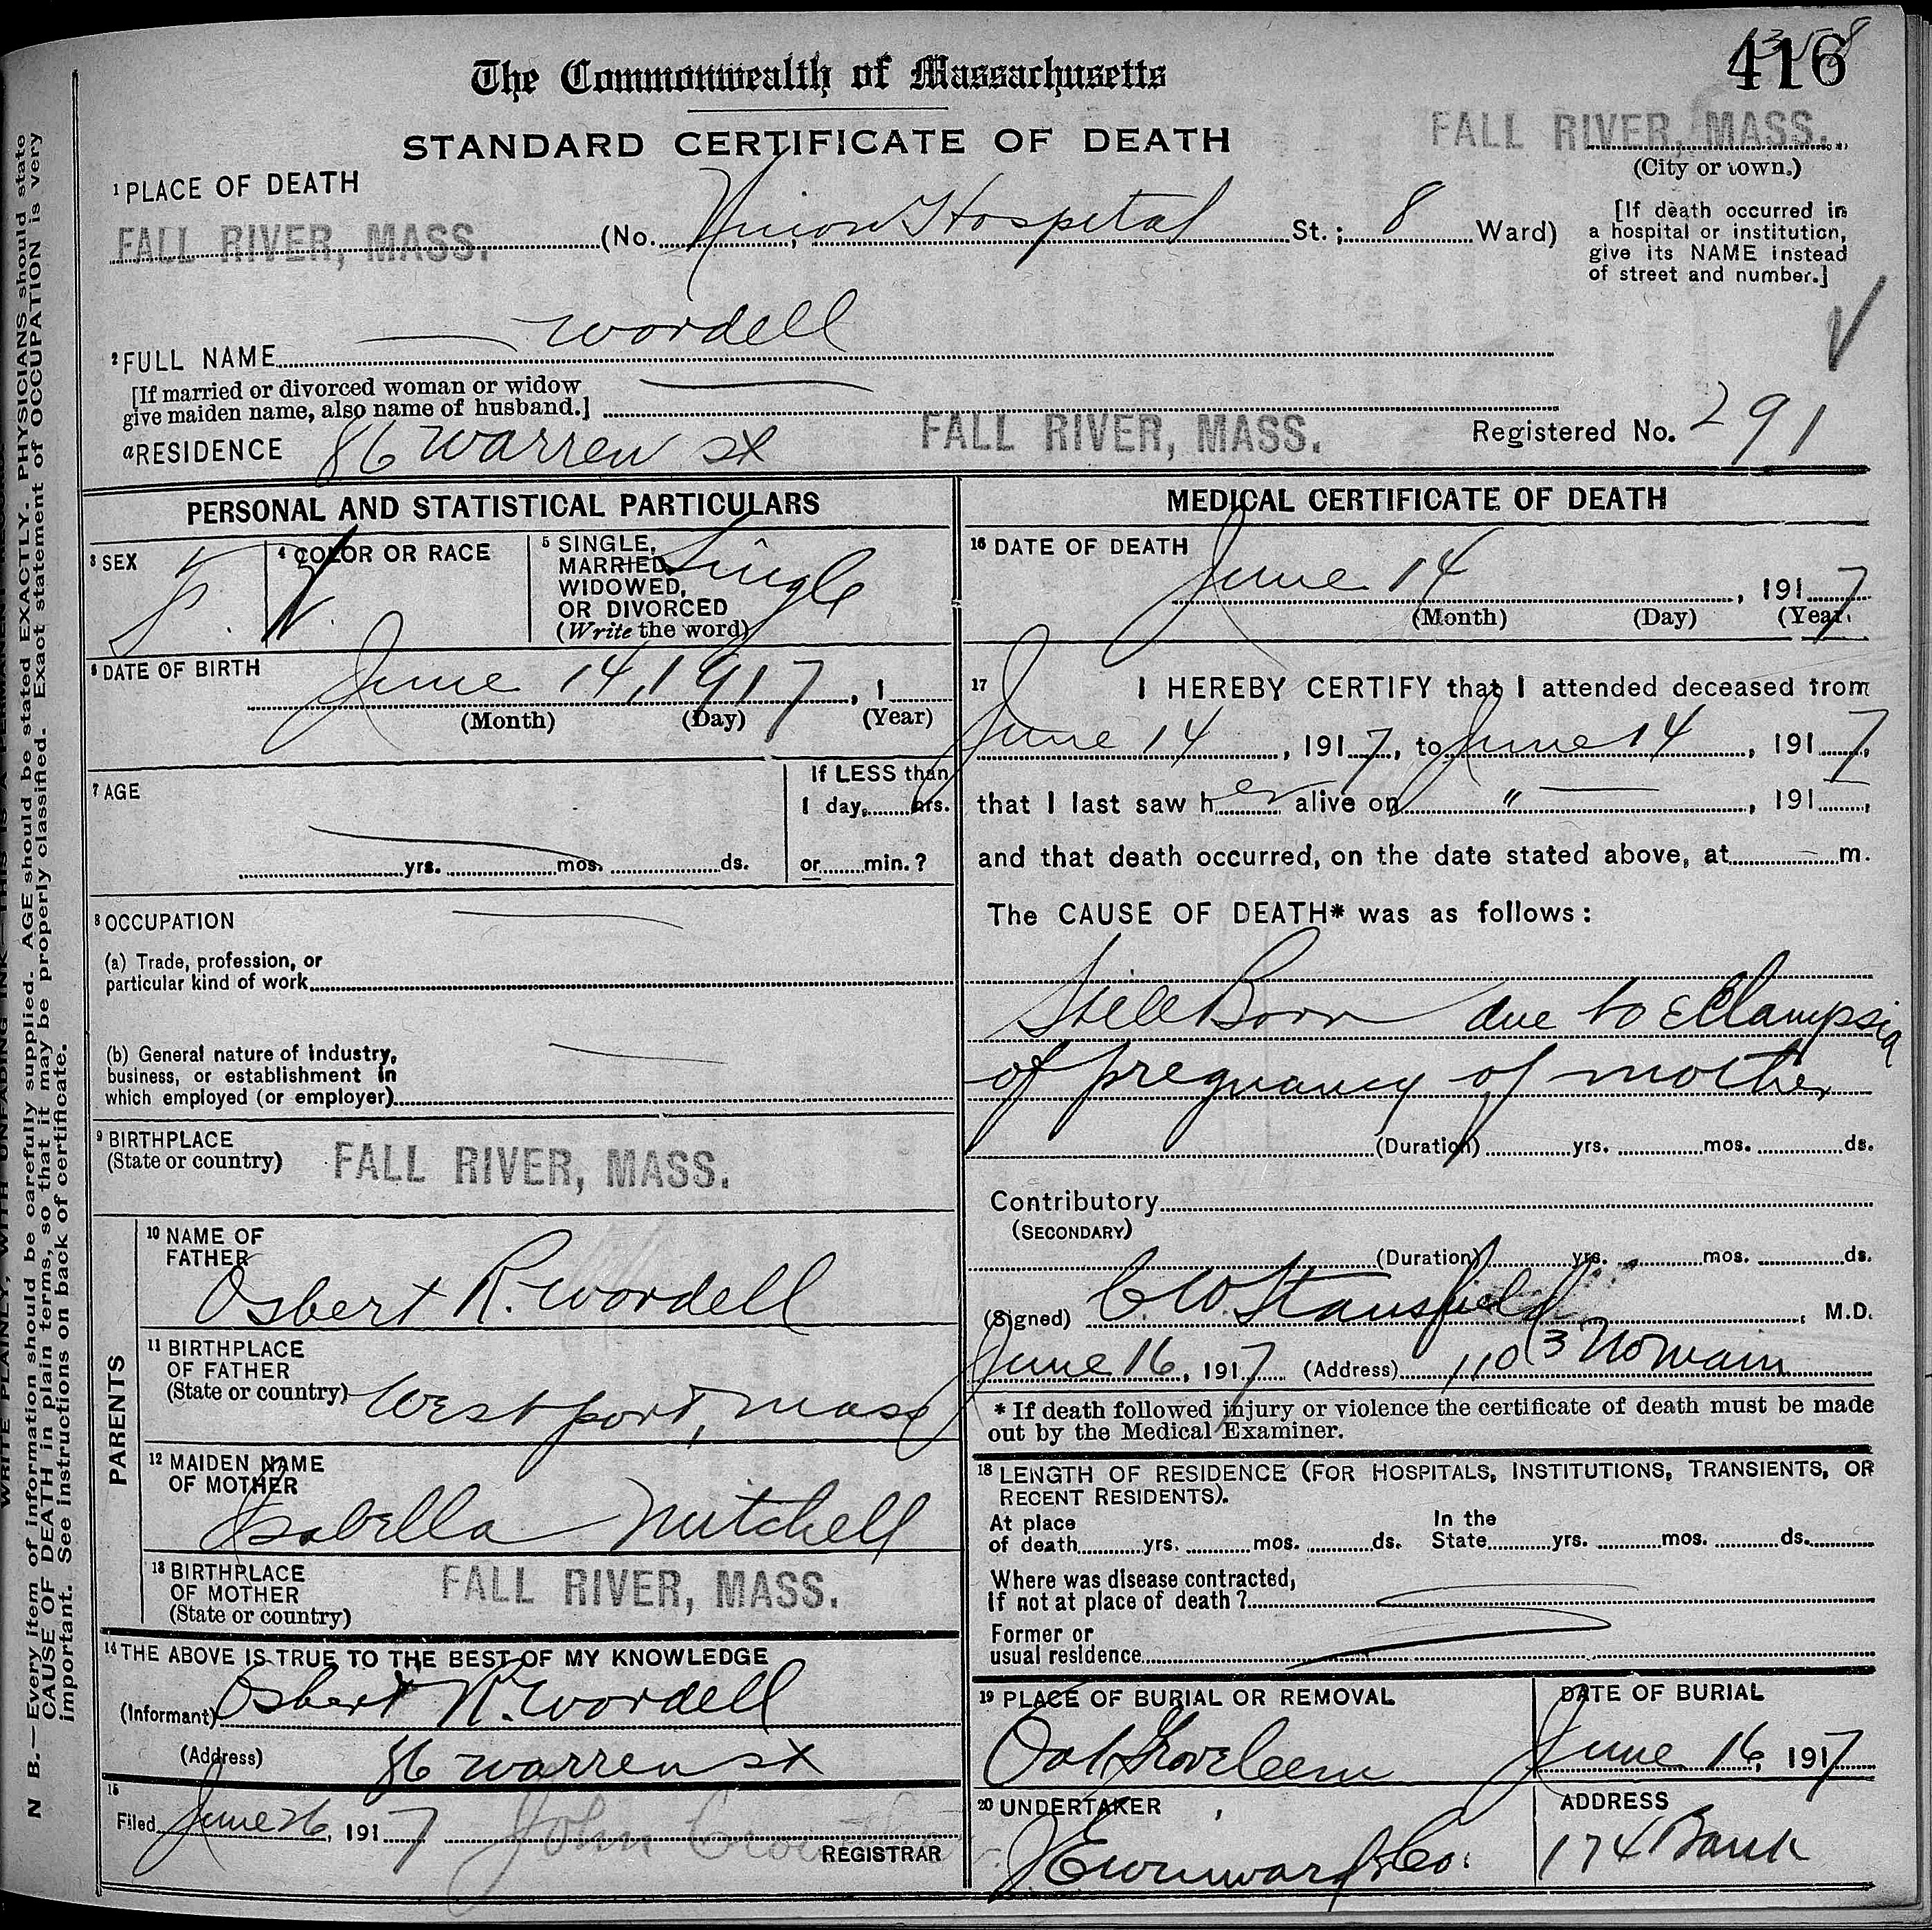 416
The Commonwealth of Massachusetts
STANDARD CERTIFICATE OF DEATH
FALL RIVER, MASS.
(City or town.)
1 PLACE OF DEATH
FALL RIVER, MASS. (No. Union Hospital St.; 8 Ward)
[If death occurred in
a hospital or institution,
give its NAME instead
of street and number.]
2 FULL NAME Wordell
[If married or divorced woman or widow
give maiden name, also name of husband.]
a RESIDENCE 86 Warren st FALL RIVER, MASS. Registered No. 291
PERSONAL AND STATISTICAL PARTICULARS
3 SEX F. 4 COLOR OR RACE
5 SINGLE, MARRIED, WIDOWED, OR DIVORCED (Write the word) Single
6 DATE OF BIRTH
June 14, 1917, 1
(Month) (Day) (Year)
7 AGE
If LESS than
1 day, hrs.
yrs. mos. ds. or min.?
8 OCCUPATION
(a) Trade, profession, or
particular kind of work
(b) General nature of industry,
business, or establishment in
which employed (or employer)
9 BIRTHPLACE
(State or country) FALL RIVER, MASS.
PARENTS
10 NAME OF
FATHER
Osbert R. Wordell
11 BIRTHPLACE
OF FATHER
(State or country) Westport, Mass
12 MAIDEN NAME
OF MOTHER
Isabella Mitchell
13 BIRTHPLACE
OF MOTHER
(State or country) FALL RIVER, MASS.
14 THE ABOVE IS TRUE TO THE BEST OF MY KNOWLEDGE
(Informant) Osbert R. Wordell
(Address) 86 Warren st
15
Filed June 26, 1917 John
REGISTRAR
MEDICAL CERTIFICATE OF DEATH
16 DATE OF DEATH
June 14, 1917
(Month) (Day) (Year)
17 I HEREBY CERTIFY that I attended deceased from
June 14, 1917, to June 14, 1917,
that I last saw her alive on " , 191 ,
and that death occurred, on the date stated above, at m.
The CAUSE OF DEATH* was as follows:
Still Born due to Eclampsia
of pregnancy of mother
(Duration) yrs. mos. ds.
Contributory
(SECONDARY)
(Duration) yrs. mos. ds.
(Signed) C. W. Stansfield, M.D.
June 16, 1917 (Address) 1103 No Main
* If death followed injury or violence the certificate of death must be made
out by the Medical Examiner.
18 LENGTH OF RESIDENCE (FOR HOSPITALS, INSTITUTIONS, TRANSIENTS, OR
RECENT RESIDENTS).
At place
of death yrs. mos. ds.
In the
State yrs. mos. ds.
Where was disease contracted,
If not at place of death?
Former or
usual residence
19 PLACE OF BURIAL OR REMOVAL
Oak Grove Cem
DATE OF BURIAL
June 16, 1917
20 UNDERTAKER
& Co.
ADDRESS
174 Bank
N B.—Every item of information should be carefully supplied. AGE should be stated EXACTLY. PHYSICIANS should state
CAUSE OF DEATH in plain terms, so that it may be properly classified. Exact statement of OCCUPATION is very
important. See instructions on back of certificate.